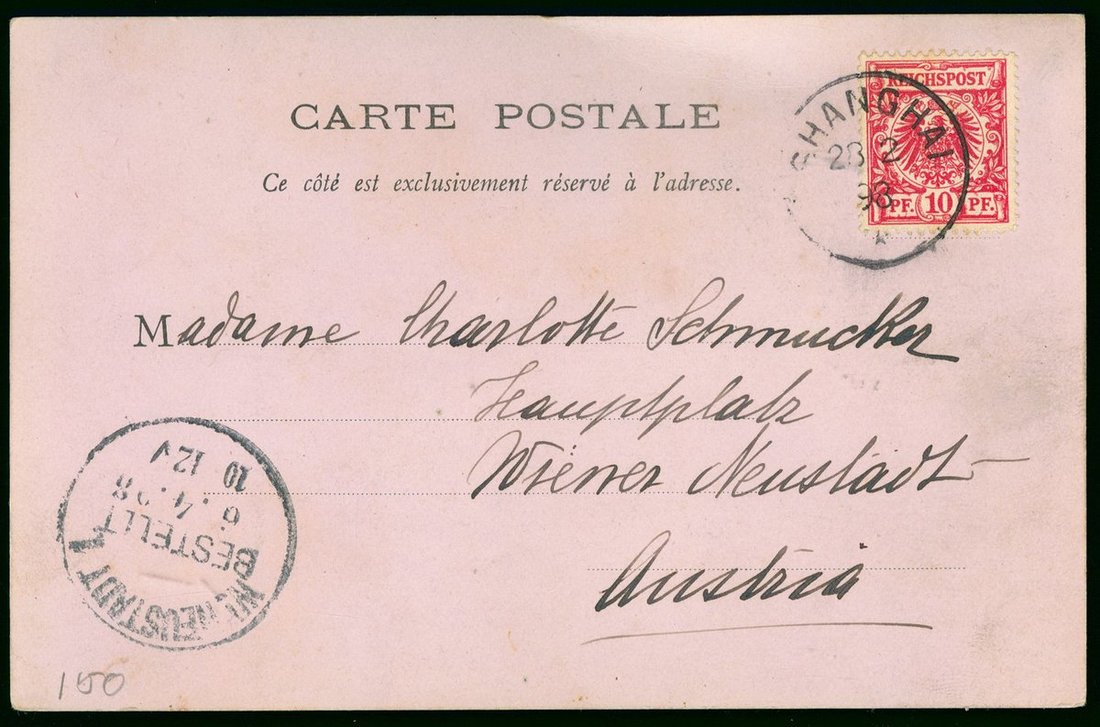 CARTE POSTALE
Ce côté est exclusivement réservé à l'adresse.
REICHSPOST
PF. 10 PF.
SHANGHAI
28 2
98
Madame Charlotte Schmucker
Hauptplatz
Wiener Neustadt
Austria
WR. NEUSTADT 1
BESTELLT
6.4.98
10 12 V
150